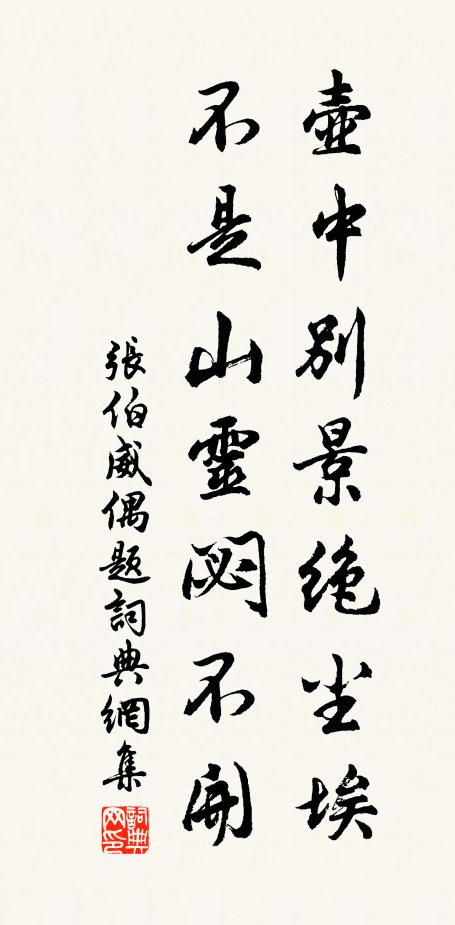 壺中別景絶尘埃
不是山靈閟不開
張伯威偶題詞典網集
詞典网印